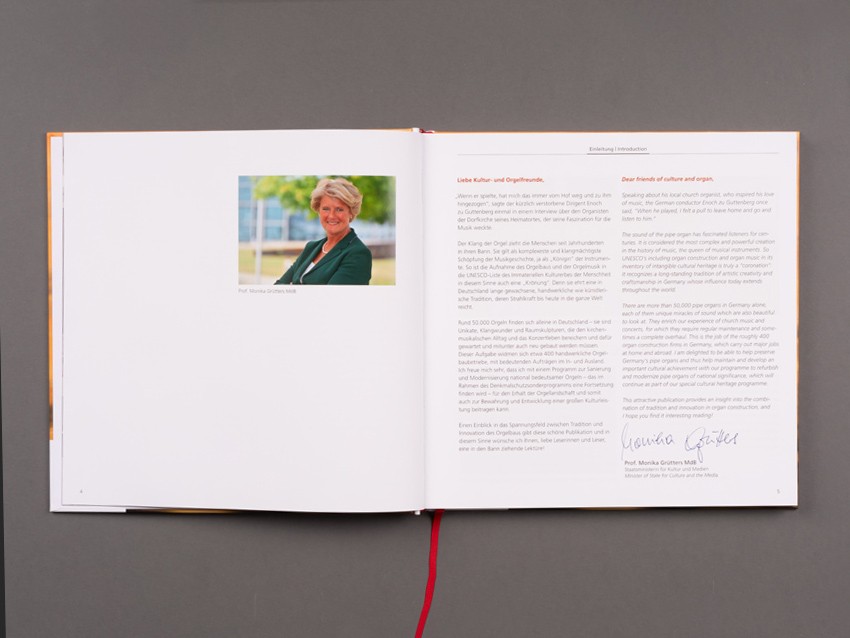 Prof. Monika Grütters MdB
4
Einleitung | Introduction
Liebe Kultur- und Orgelfreunde,
„Wenn er spielte, hat mich das immer vom Hof weg und zu ihm
hingezogen", sagte der kürzlich verstorbene Dirigent Enoch
zu Guttenberg einmal in einem Interview über den Organisten
der Dorfkirche seines Heimatortes, der seine Faszination für die
Musik weckte.
Der Klang der Orgel zieht die Menschen seit Jahrhunderten
in ihren Bann. Sie gilt als komplexeste und klangmächtigste
Schöpfung der Musikgeschichte, ja als „Königin" der Instrumen-
te. So ist die Aufnahme des Orgelbaus und der Orgelmusik in
die UNESCO-Liste des Immateriellen Kulturerbes der Menschheit
in diesem Sinne auch eine „Krönung". Denn sie ehrt eine in
Deutschland lange gewachsene, handwerkliche wie künstleri-
sche Tradition, deren Strahlkraft bis heute in die ganze Welt
reicht.
Rund 50.000 Orgeln finden sich alleine in Deutschland – sie sind
Unikate, Klangwunder und Raumskulpturen, die den kirchen-
musikalischen Alltag und das Konzertleben bereichern und dafür
gewartet und mitunter auch neu gebaut werden müssen.
Dieser Aufgabe widmen sich etwa 400 handwerkliche Orgel-
baubetriebe, mit bedeutenden Aufträgen im In- und Ausland.
Ich freue mich sehr, dass ich mit einem Programm zur Sanierung
und Modernisierung national bedeutsamer Orgeln – das im
Rahmen des Denkmalschutzsonderprogramms eine Fortsetzung
finden wird – für den Erhalt der Orgellandschaft und somit
auch zur Bewahrung und Entwicklung einer großen Kulturleis-
tung beitragen kann.
Einen Einblick in das Spannungsfeld zwischen Tradition und
Innovation des Orgelbaus gibt diese schöne Publikation und in
diesem Sinne wünsche ich Ihnen, liebe Leserinnen und Leser,
eine in den Bann ziehende Lektüre!
Dear friends of culture and organ,
Speaking about his local church organist, who inspired his love
of music, the German conductor Enoch zu Guttenberg once
said, "When he played, I felt a pull to leave home and go and
listen to him."
The sound of the pipe organ has fascinated listeners for cen-
turies. It is considered the most complex and powerful creation
in the history of music, the queen of musical instruments. So
UNESCO's including organ construction and organ music in its
inventory of intangible cultural heritage is truly a "coronation".
It recognizes a long-standing tradition of artistic creativity and
craftsmanship in Germany whose influence today extends
throughout the world.
There are more than 50,000 pipe organs in Germany alone,
each of them unique miracles of sound which are also beautiful
to look at. They enrich our experience of church music and
concerts, for which they require regular maintenance and some-
times a complete overhaul. This is the job of the roughly 400
organ construction firms in Germany, which carry out major jobs
at home and abroad. I am delighted to be able to help preserve
Germany's pipe organs and thus help maintain and develop an
important cultural achievement with our programme to refurbish
and modernize pipe organs of national significance, which will
continue as part of our special cultural heritage programme.
This attractive publication provides an insight into the combi-
nation of tradition and innovation in organ construction, and
I hope you find it interesting reading!
Monika Grütters
Prof. Monika Grütters MdB
Staatsministerin für Kultur und Medien
Minister of State for Culture and the Media
5